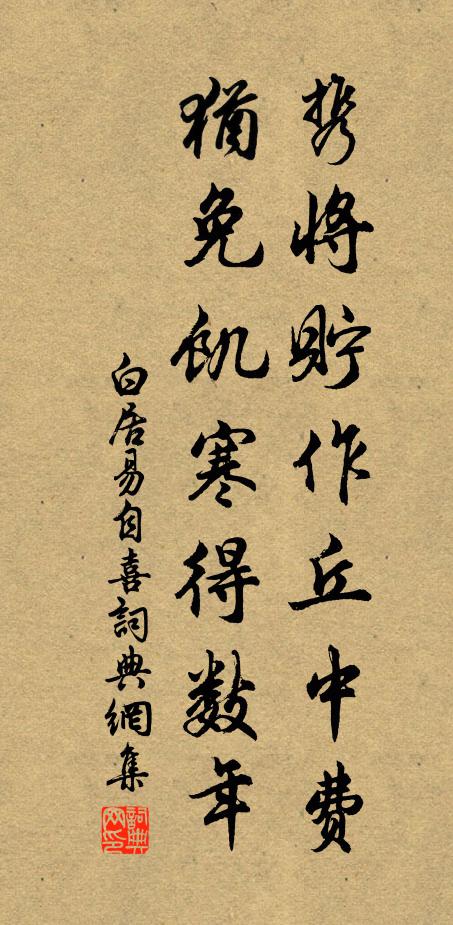 携將貯作丘中費
猶免飢寒得數年
白居易自喜詞典網集
詞典网印